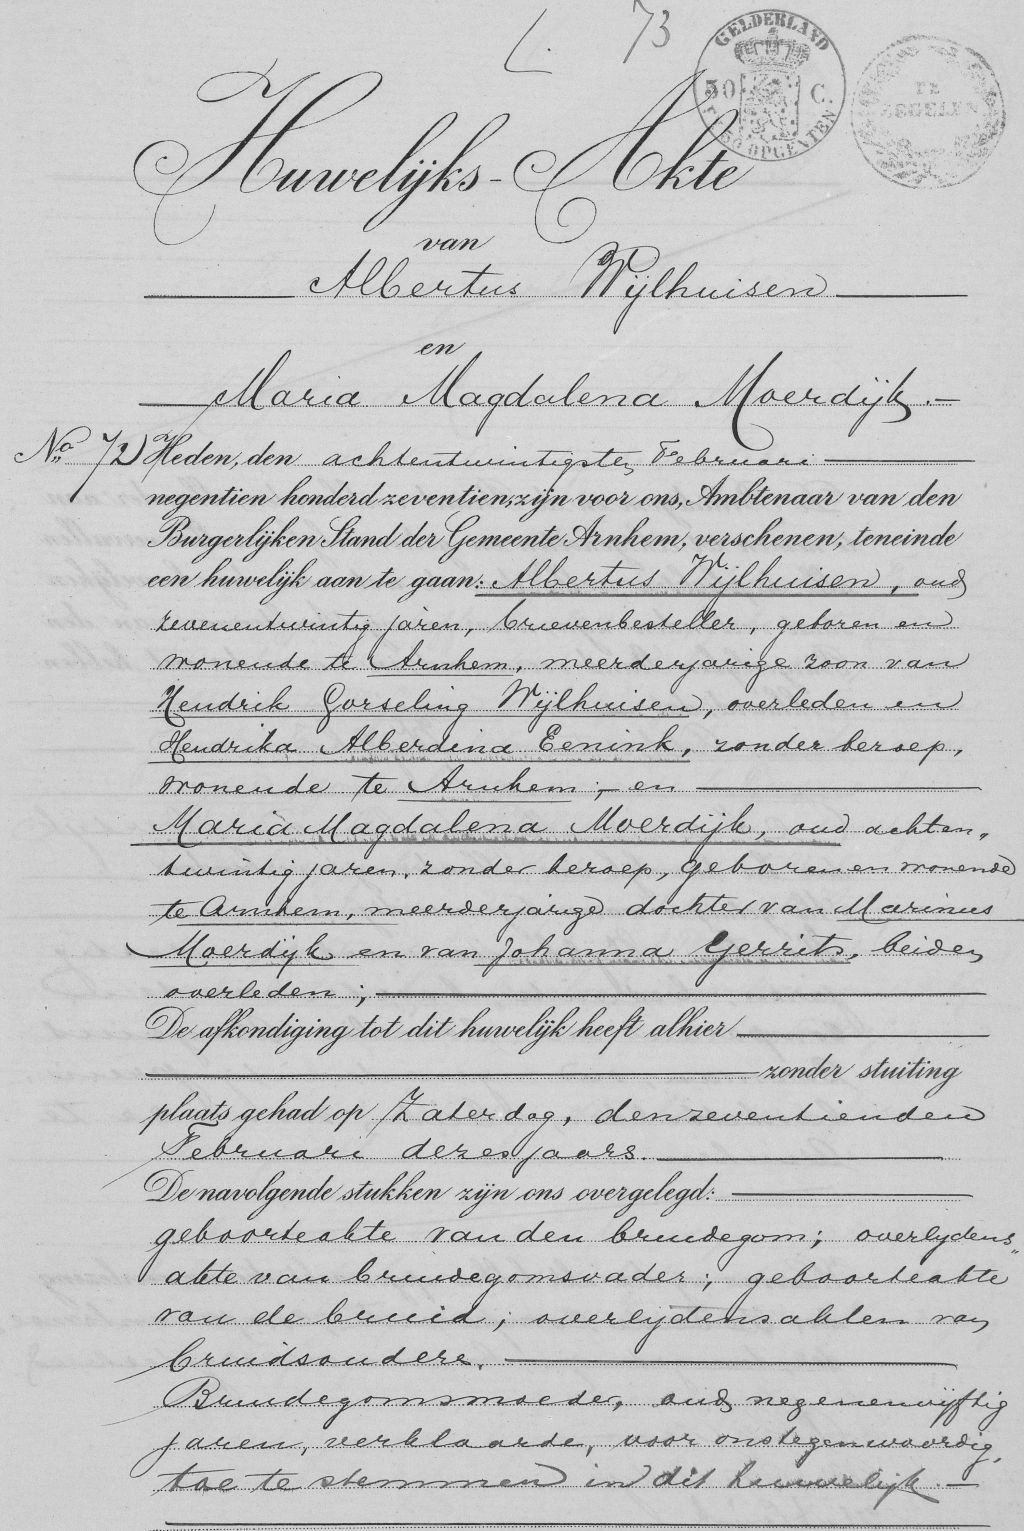 L. 73
GELDERLAND
50 C.
50 OPCENTEN
TE
ZEGELEN
Huwelijks-Akte
van
Albertus Wijlhuisen
en
Maria Magdalena Moerdijk.
No. 72 Heden, den achtentwintigsten Februari
negentien honderd zeventien, zijn voor ons, Ambtenaar van den
Burgerlijken Stand der Gemeente Arnhem, verschenen, teneinde
een huwelijk aan te gaan: Albertus Wijlhuisen, oud
zevenentwintig jaren, brievenbesteller, geboren en
wonende te Arnhem, meerderjarige zoon van
Hendrik Gorseling Wijlhuisen, overleden en
Hendrika Alberdina Eenink, zonder beroep,
wonende te Arnhem; en
Maria Magdalena Moerdijk, oud achten„
twintig jaren, zonder beroep, geboren en wonende
te Arnhem, meerderjarige dochter van Marinus
Moerdijk en van Johanna Gerrits, beiden
overleden;
De afkondiging tot dit huwelijk heeft alhier
zonder stuiting
plaats gehad op Zaterdag, den zeventienden
Februari dezes jaars.
De navolgende stukken zijn ons overgelegd:
geboorteakte van den bruidegom; overlijdens„
akte van bruidegomsvader; geboorteakte
van de bruid; overlijdensakten van
bruidsouders.
Bruidegomsmoeder, oud negenenvijftig
jaren, verklaarde, voor ons tegenwoordig,
toe te stemmen in dit huwelijk.